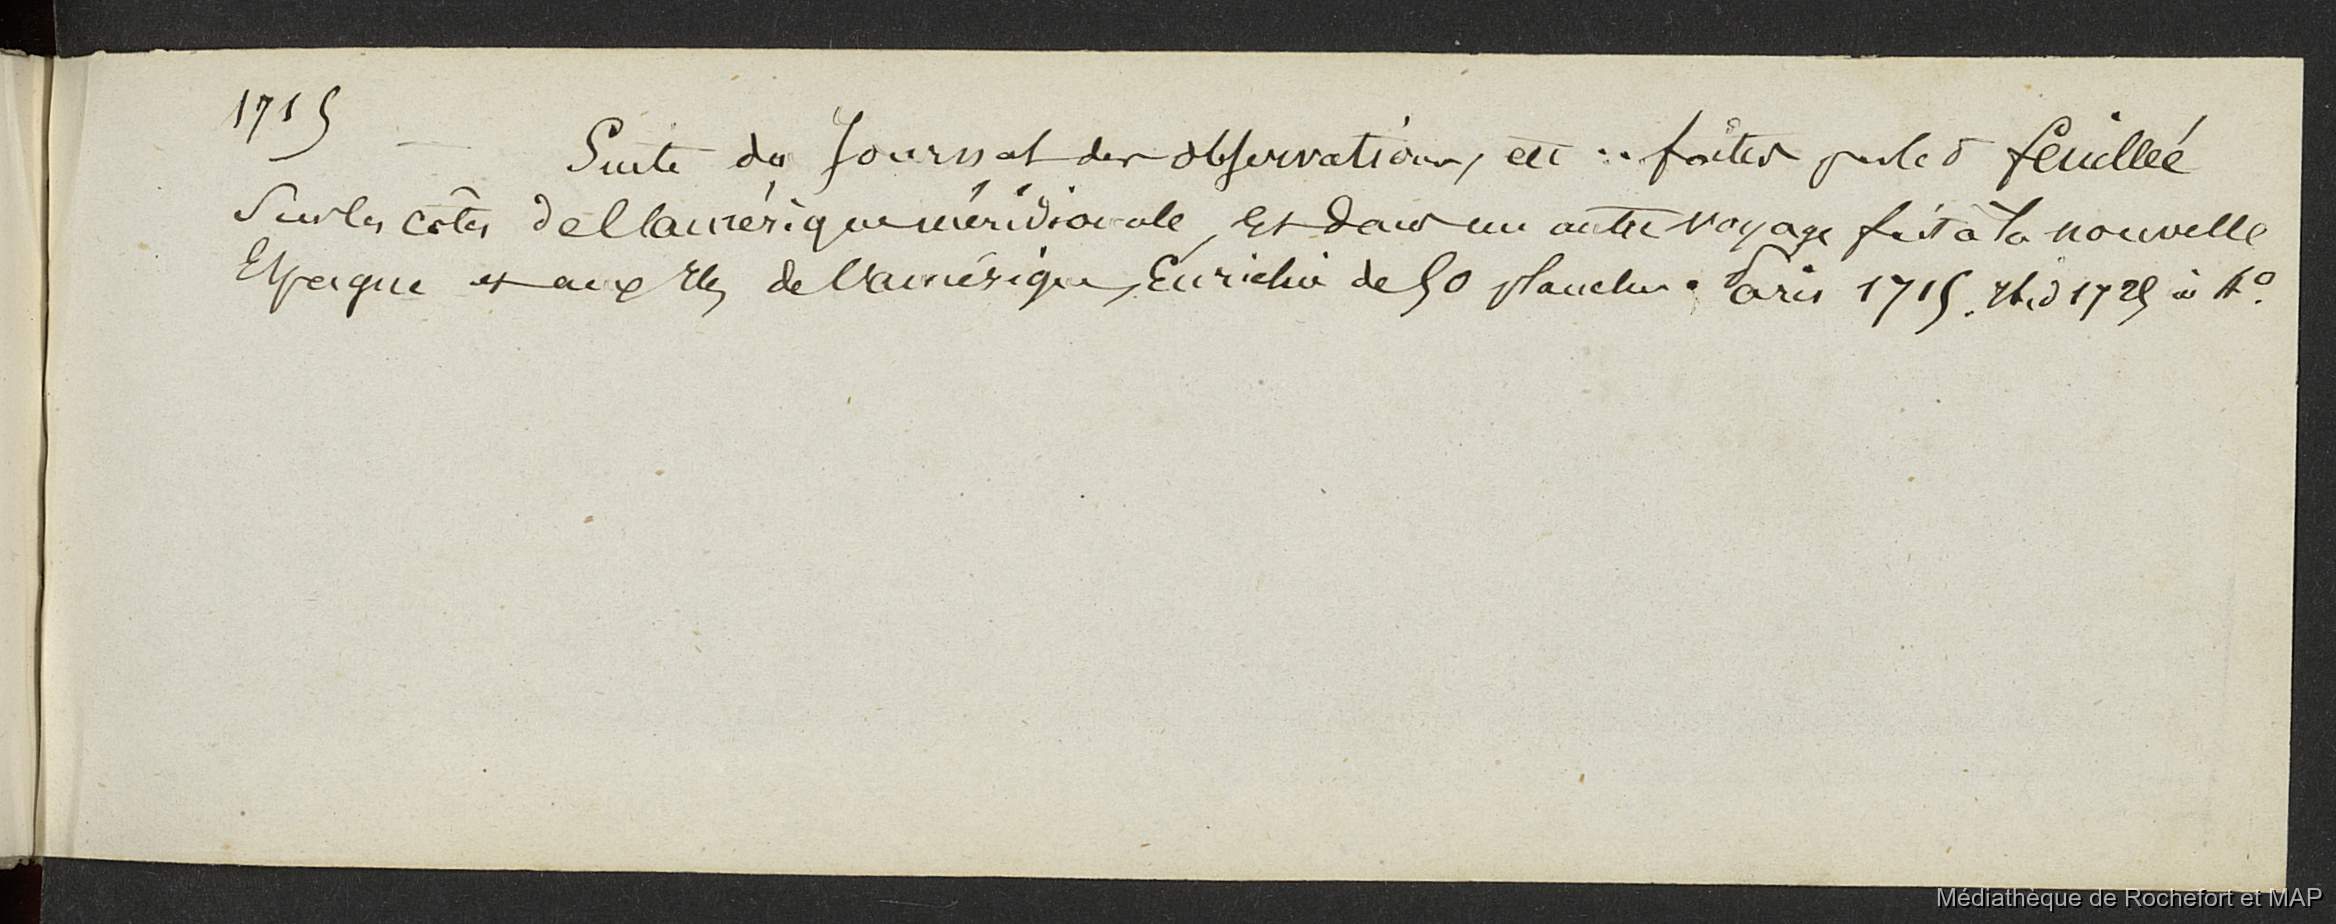 1715
Suite du Journal des observations, etc .. faites par le P feuillée
Sur les côtes de l'amérique méridionale, Et dans un autre voyage fait à la nouvelle
Espagne et aux Iles de l'amérique, Enrichi de 50 planches. Paris 1715. Ibid 1725 in 4º.
Médiathèque de Rochefort et MAP